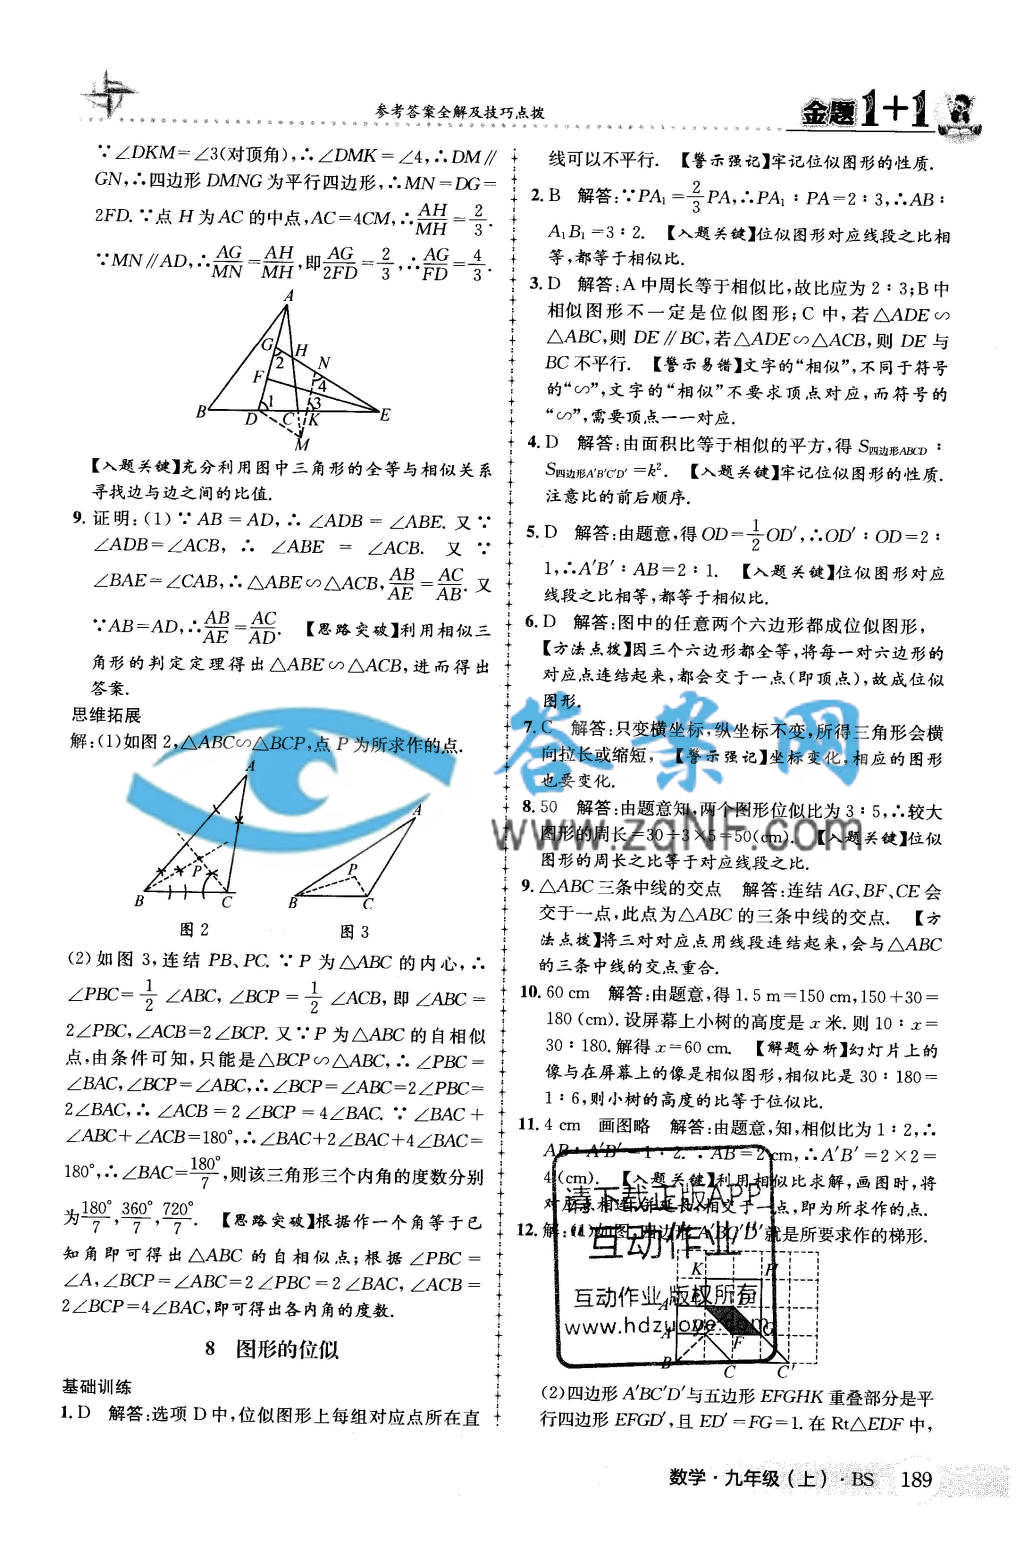 参考答案全解及技巧点拨
金题1+1
∵∠DKM=∠3(对顶角),∴∠DMK=∠4,∴DM∥
GN,∴四边形 DMNG 为平行四边形,∴MN=DG=
2FD. ∵点 H 为 AC 的中点,AC=4CM,∴AH/MH=2/3.
∵MN∥AD,∴AG/MN=AH/MH,即AG/2FD=2/3,∴AG/FD=4/3.
A
G
H
2
N
F
4
1
3
B
D
C
K
E
M
【入题关键】充分利用图中三角形的全等与相似关系
寻找边与边之间的比值.
9. 证明:(1)∵AB=AD,∴∠ADB=∠ABE. 又∵
∠ADB=∠ACB,∴∠ABE=∠ACB. 又∵
∠BAE=∠CAB,∴△ABE∽△ACB,AB/AE=AC/AB. 又
∵AB=AD,∴AB/AE=AC/AD. 【思路突破】利用相似三
角形的判定定理得出△ABE∽△ACB,进而得出
答案.
思维拓展
解:(1)如图 2,△ABC∽△BCP,点 P 为所求作的点.
A
P
B
C
图 2
A
P
B
C
图 3
(2)如图 3,连结 PB、PC. ∵P 为△ABC 的内心,∴
∠PBC=1/2∠ABC,∠BCP=1/2∠ACB,即∠ABC=
2∠PBC,∠ACB=2∠BCP. 又∵P 为△ABC 的自相似
点,由条件可知,只能是△BCP∽△ABC,∴∠PBC=
∠BAC,∠BCP=∠ABC,∴∠BCP=∠ABC=2∠PBC=
2∠BAC,∴∠ACB=2∠BCP=4∠BAC. ∵∠BAC+
∠ABC+∠ACB=180°,∴∠BAC+2∠BAC+4∠BAC=
180°,∴∠BAC=180°/7,则该三角形三个内角的度数分别
为180°/7,360°/7,720°/7. 【思路突破】根据作一个角等于已
知角即可得出△ABC 的自相似点;根据∠PBC=
∠A,∠BCP=∠ABC=2∠PBC=2∠BAC,∠ACB=
2∠BCP=4∠BAC,即可得出各内角的度数.
8 图形的位似
基础训练
1. D 解答:选项 D 中,位似图形上每组对应点所在直
线可以不平行. 【警示强记】牢记位似图形的性质.
2. B 解答:∵PA₁=2/3PA,∴PA₁∶PA=2∶3,∴AB∶
A₁B₁=3∶2. 【入题关键】位似图形对应线段之比相
等,都等于相似比.
3. D 解答:A 中周长等于相似比,故比应为 2∶3;B 中
相似图形不一定是位似图形;C 中,若△ADE∽
△ABC,则 DE∥BC,若△ADE∽△ACB,则 DE 与
BC 不平行. 【警示易错】文字的“相似”,不同于符号
的“∽”,文字的“相似”不要求顶点对应,而符号的
“∽”,需要顶点一一对应.
4. D 解答:由面积比等于相似的平方,得 S四边形ABCD∶
S四边形A'B'C'D'=k². 【入题关键】牢记位似图形的性质.
注意比的前后顺序.
5. D 解答:由题意,得 OD=1/2OD',∴OD'∶OD=2∶
1,∴A'B'∶AB=2∶1. 【入题关键】位似图形对应
线段之比相等,都等于相似比.
6. D 解答:图中的任意两个六边形都成位似图形,
【方法点拨】因三个六边形都全等,将每一对六边形的
对应点连结起来,都会交于一点(即顶点),故成位似
图形.
7. C 解答:只变横坐标,纵坐标不变,所得三角形会横
向拉长或缩短, 【警示强记】坐标变化,相应的图形
也要变化.
8. 50 解答:由题意知,两个图形位似比为 3∶5,∴较大
图形的周长=30÷3×5=50(cm). 【入题关键】位似
图形的周长之比等于对应线段之比.
9. △ABC 三条中线的交点 解答:连结 AG、BF、CE 会
交于一点,此点为△ABC 的三条中线的交点. 【方
法点拨】将三对对应点用线段连结起来,会与△ABC
的三条中线的交点重合.
10. 60 cm 解答:由题意,得 1.5 m=150 cm,150+30=
180 (cm). 设屏幕上小树的高度是 x 米. 则 10∶x=
30∶180. 解得 x=60 cm. 【解题分析】幻灯片上的
像与在屏幕上的像是相似图形,相似比是 30∶180=
1∶6,则小树的高度的比等于位似比.
11. 4 cm 画图略 解答:由题意,知,相似比为 1∶2,∴
AB∶A'B'=1∶2. ∴AB=2 cm,∴A'B'=2×2=
4 (cm). 【入题关键】利用相似比求解,画图时,将
对应点相连,并延长,相交于一点,即为所求作的点.
12. 解:(1)如图,四边形 A'BC'D'就是所要求作的梯形.
K
H
A
G
F
B
C
C'
(2)四边形 A'BC'D'与五边形 EFGHK 重叠部分是平
行四边形 EFGD',且 ED'=FG=1. 在 Rt△EDF 中,
答案网
www.zqNF.com
请下载正版APP
互动作业
互动作业,版权所有
www.hdzuoye.com
数学·九年级(上)·BS 189